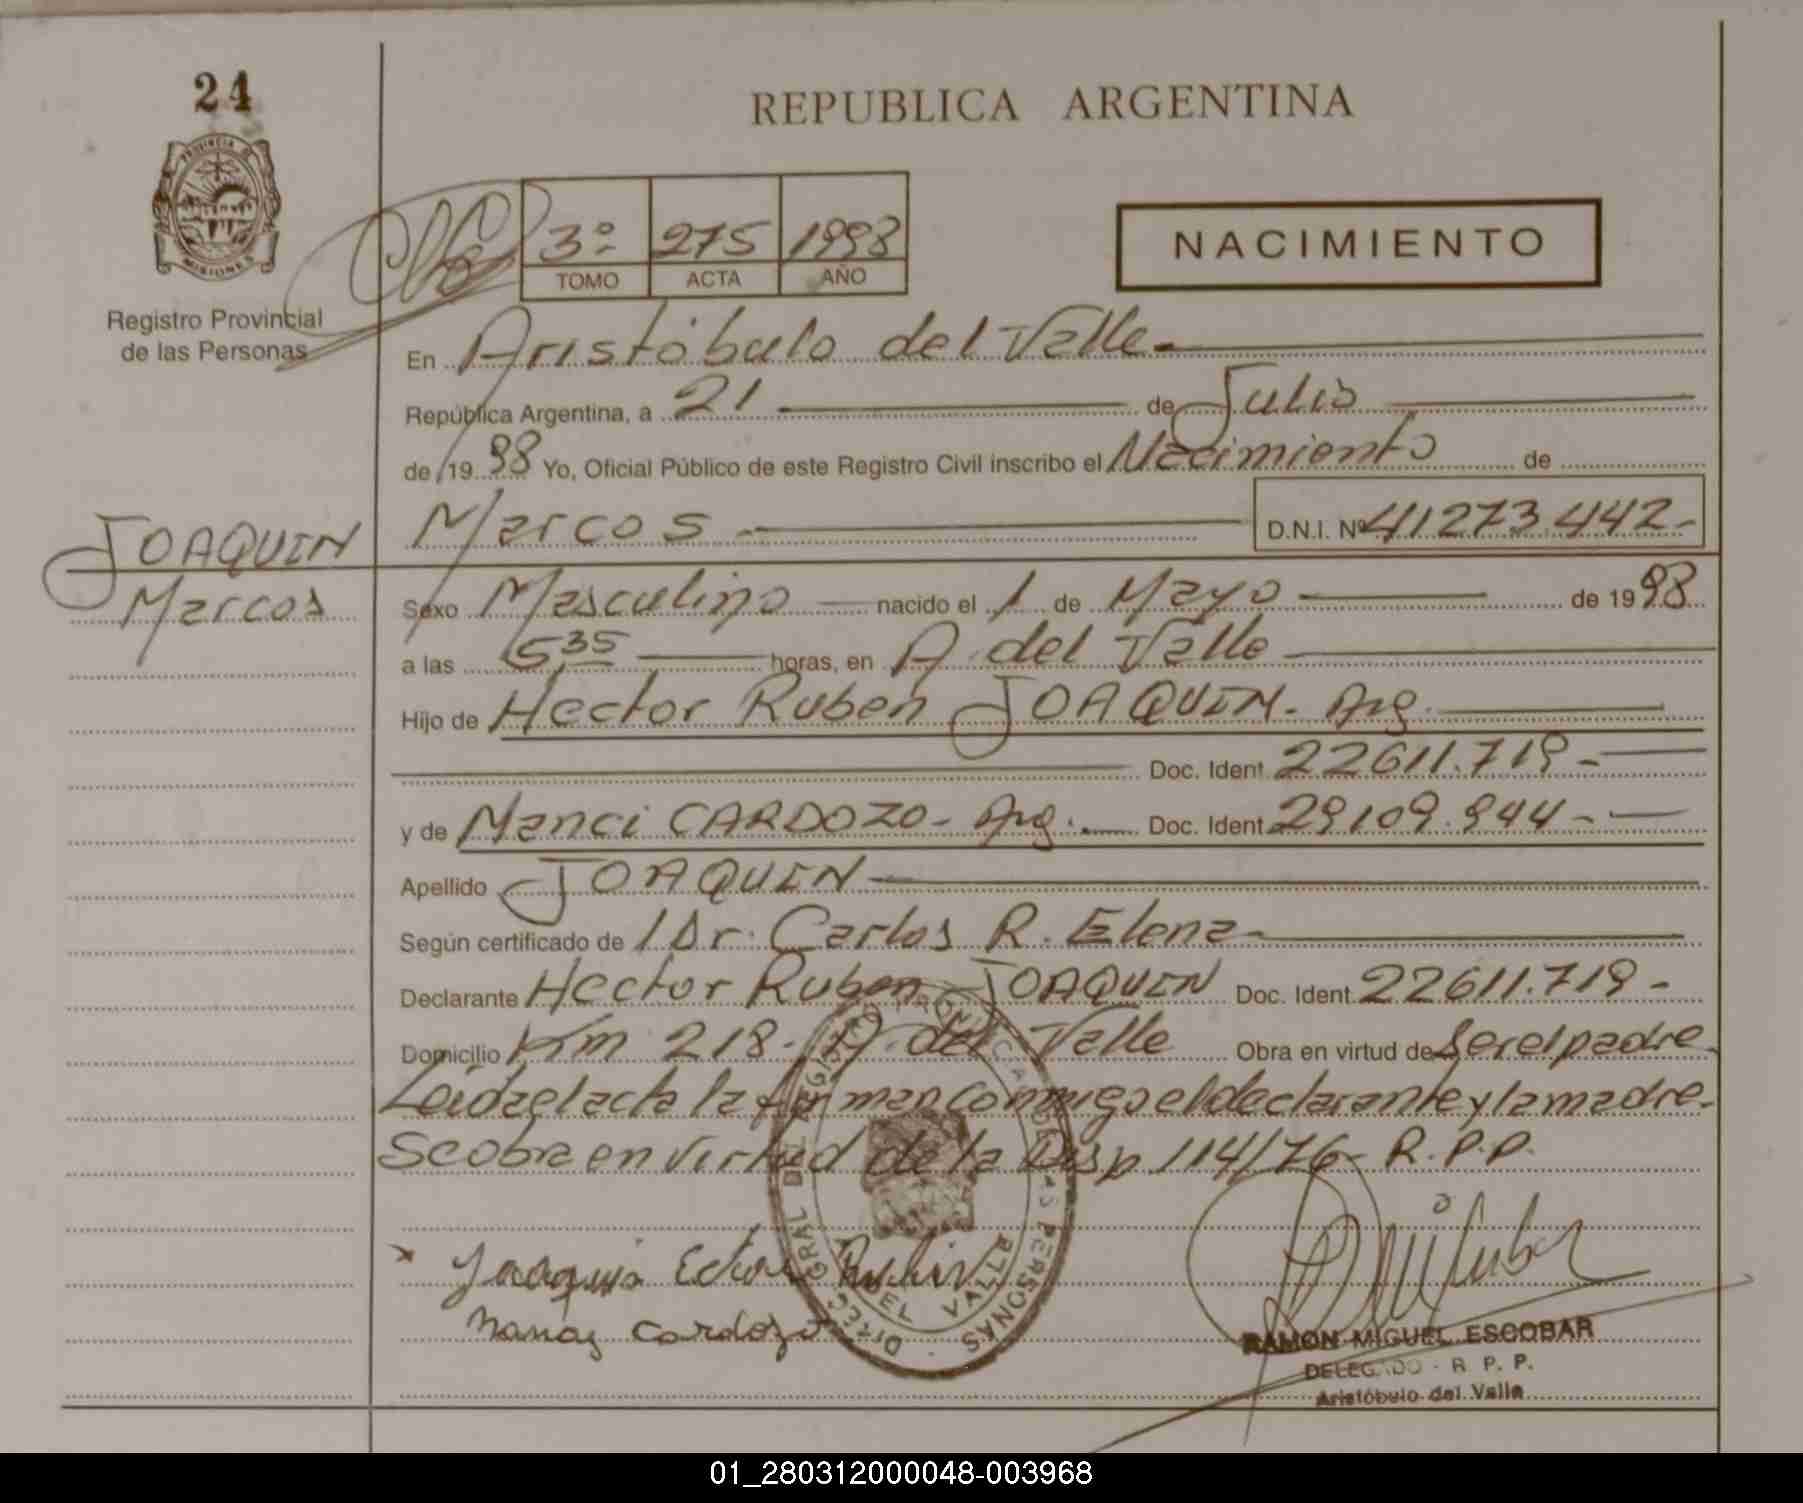 24
REPUBLICA ARGENTINA
PROVINCIA DE
MISIONES
Registro Provincial
de las Personas
3º 275 1998
TOMO ACTA AÑO
NACIMIENTO
En Aristóbulo del Valle-
República Argentina, a 21 de Julio
de 19 98 Yo, Oficial Público de este Registro Civil inscribo el Nacimiento de
Marcos - D.N.I. Nº 41273.442-
JOAQUIN
Marcos
Sexo Masculino nacido el 1 de Mayo de 19 98
a las 5,35 horas, en A. del Valle
Hijo de Hector Ruben JOAQUIN- Arg.
Doc. Ident. 22611.719-
y de Manci CARDOZO- Arg. Doc. Ident. 29109.944-
Apellido JOAQUIN
Según certificado de / Dr. Carlos R. Elena-
Declarante Hector Ruben JOAQUIN Doc. Ident. 22611.719-
Domicilio Km 218- A. del Valle Obra en virtud de Ser el padre.
Leida el acta la firman conmigo el declarante y la madre.
Se obra en virtud de la Disp 114/76- R.P.P.
DIREC. GRAL DEL REGISTRO PROVINCIAL DE LAS PERSONAS
A. DEL VALLE
Joaquin Ector Rubin
Cardozo
RAMON MIGUEL ESCOBAR
DELEGADO - R. P. P.
Aristóbulo del Valle
01_280312000048-003968